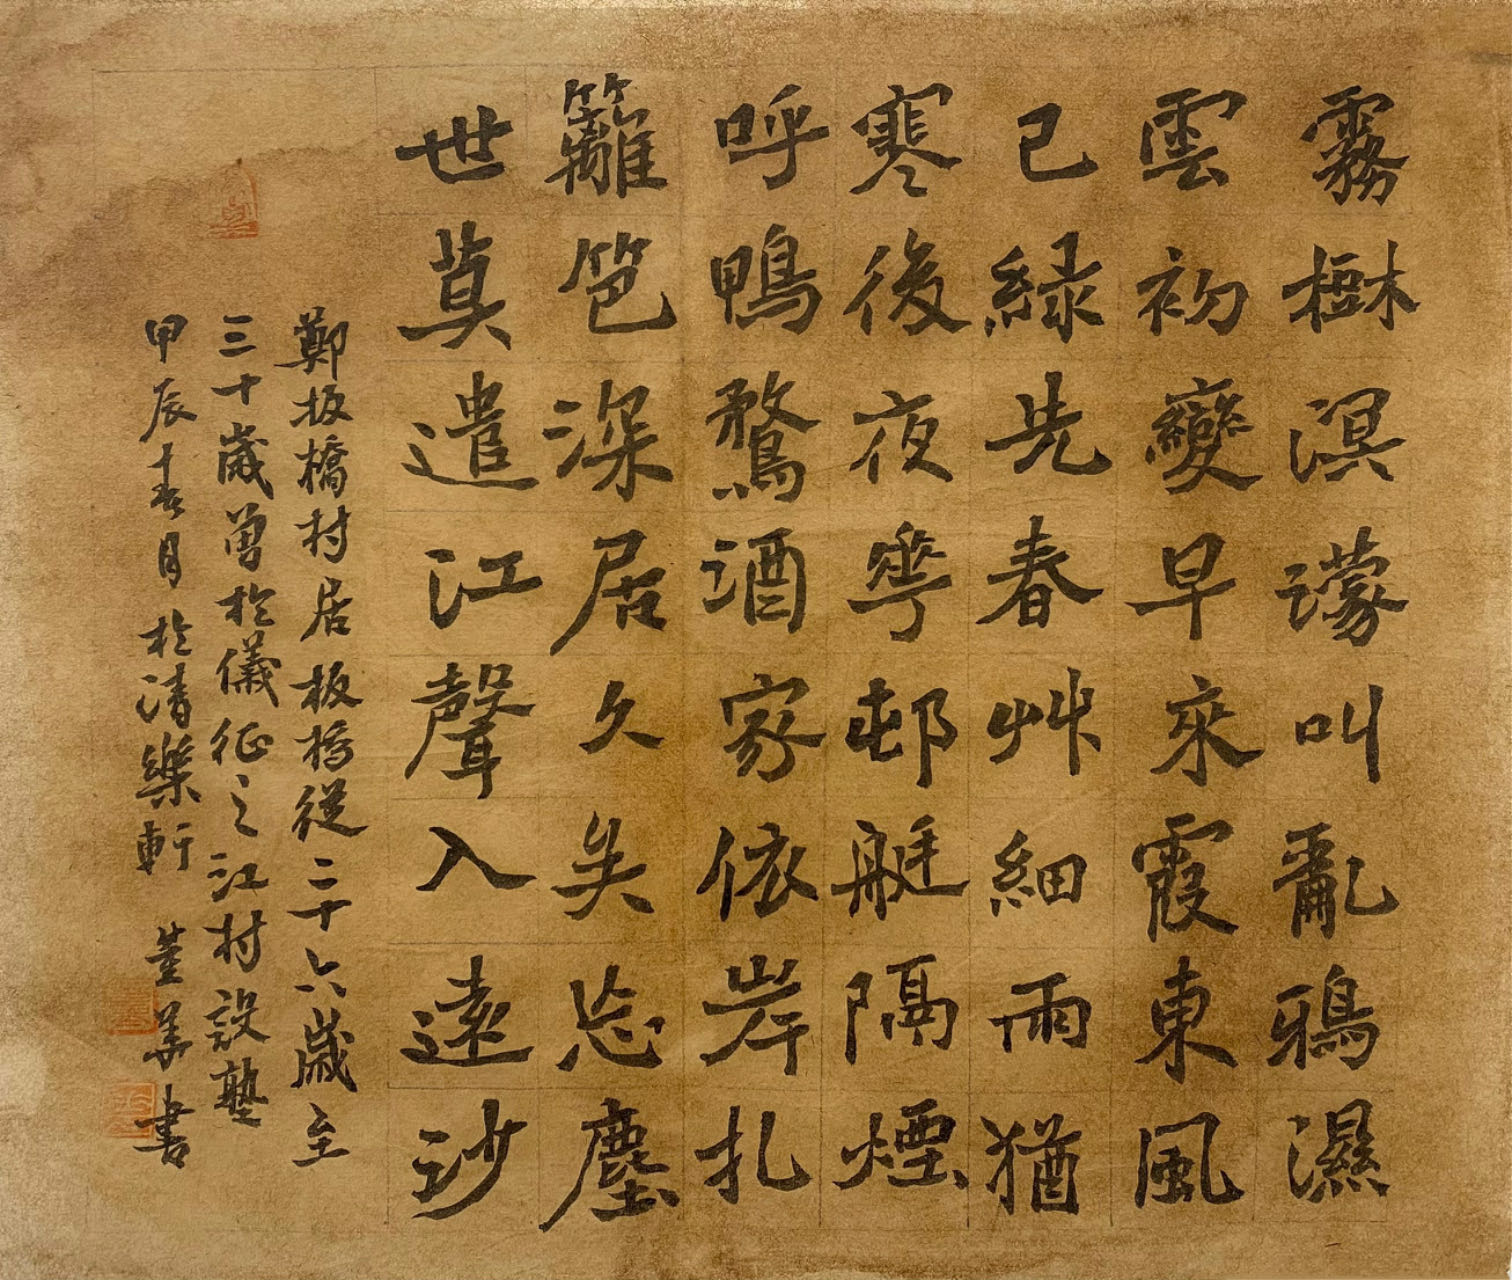 霧樹溟濛叫亂鴉濕
雲初變早來霞東風
已綠先春艸細雨猶
寒後夜花邨艇隔煙
呼鴨鶩酒家依岸扎
籬笆深居久矣忘塵
世莫遣江聲入遠沙
鄭板橋村居板橋從二十六歲至
三十歲曾於儀征之江村設塾
甲辰十一月於清樂軒 董華書